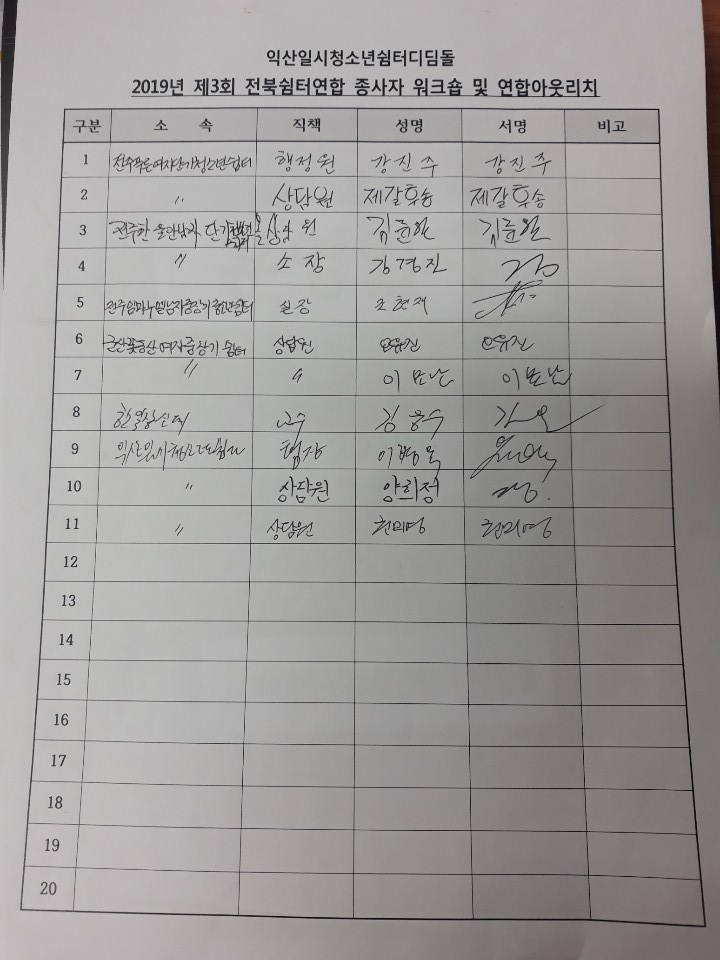 익산일시청소년쉼터디딤돌
2019년 제3회 전북쉼터연합 종사자 워크숍 및 연합아웃리치
구분 소 속 직책 성명 서명 비고
1 전주푸른여자단기청소년쉼터 행정원 강진주 강진주
2 〃 상담원 제갈후송 제갈후송
3 전주한울안남자단기 상담원 김윤환 김윤환
4 〃 소장 강경진
5 전주임마누엘남자중장기청소년쉼터 실장 조현재
6 군산꽃동산여자중장기쉼터 상담원 안유진 안유진
7 〃 〃 이보난 이보난
8 교수 김
9 익산일시청소년쉼터 팀장
10 〃 상담원 양희정
11 〃 상담원 천미영 천미영
12
13
14
15
16
17
18
19
20